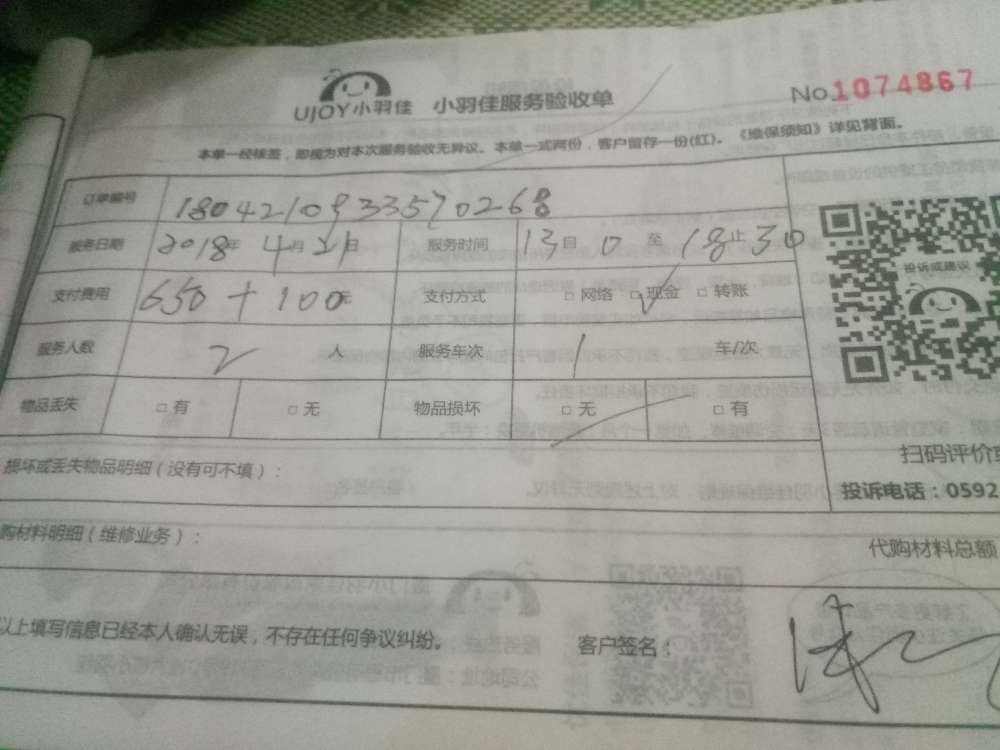 UJOY小羽佳 小羽佳服务验收单 No.1074867
本单一经核签，即视为对本次服务验收无异议。本单一式两份，客户留存一份(红)。《维保须知》详见背面。
订单编号 180421093357 0268
服务日期 2018年 4月21日 服务时间 13自 0 至 18止30
支付费用 650+100元 支付方式 □网络 □✓现金 □转账
投诉或建议
服务人数 2 人 服务车次 1 车/次
物品丢失 □有 □无 物品损坏 □无 □有
扫码评价
损坏或丢失物品明细（没有可不填）：
投诉电话：0592
购材料明细（维修业务）：
代购材料总额
以上填写信息已经本人确认无误，不存在任何争议纠纷。 客户签名：